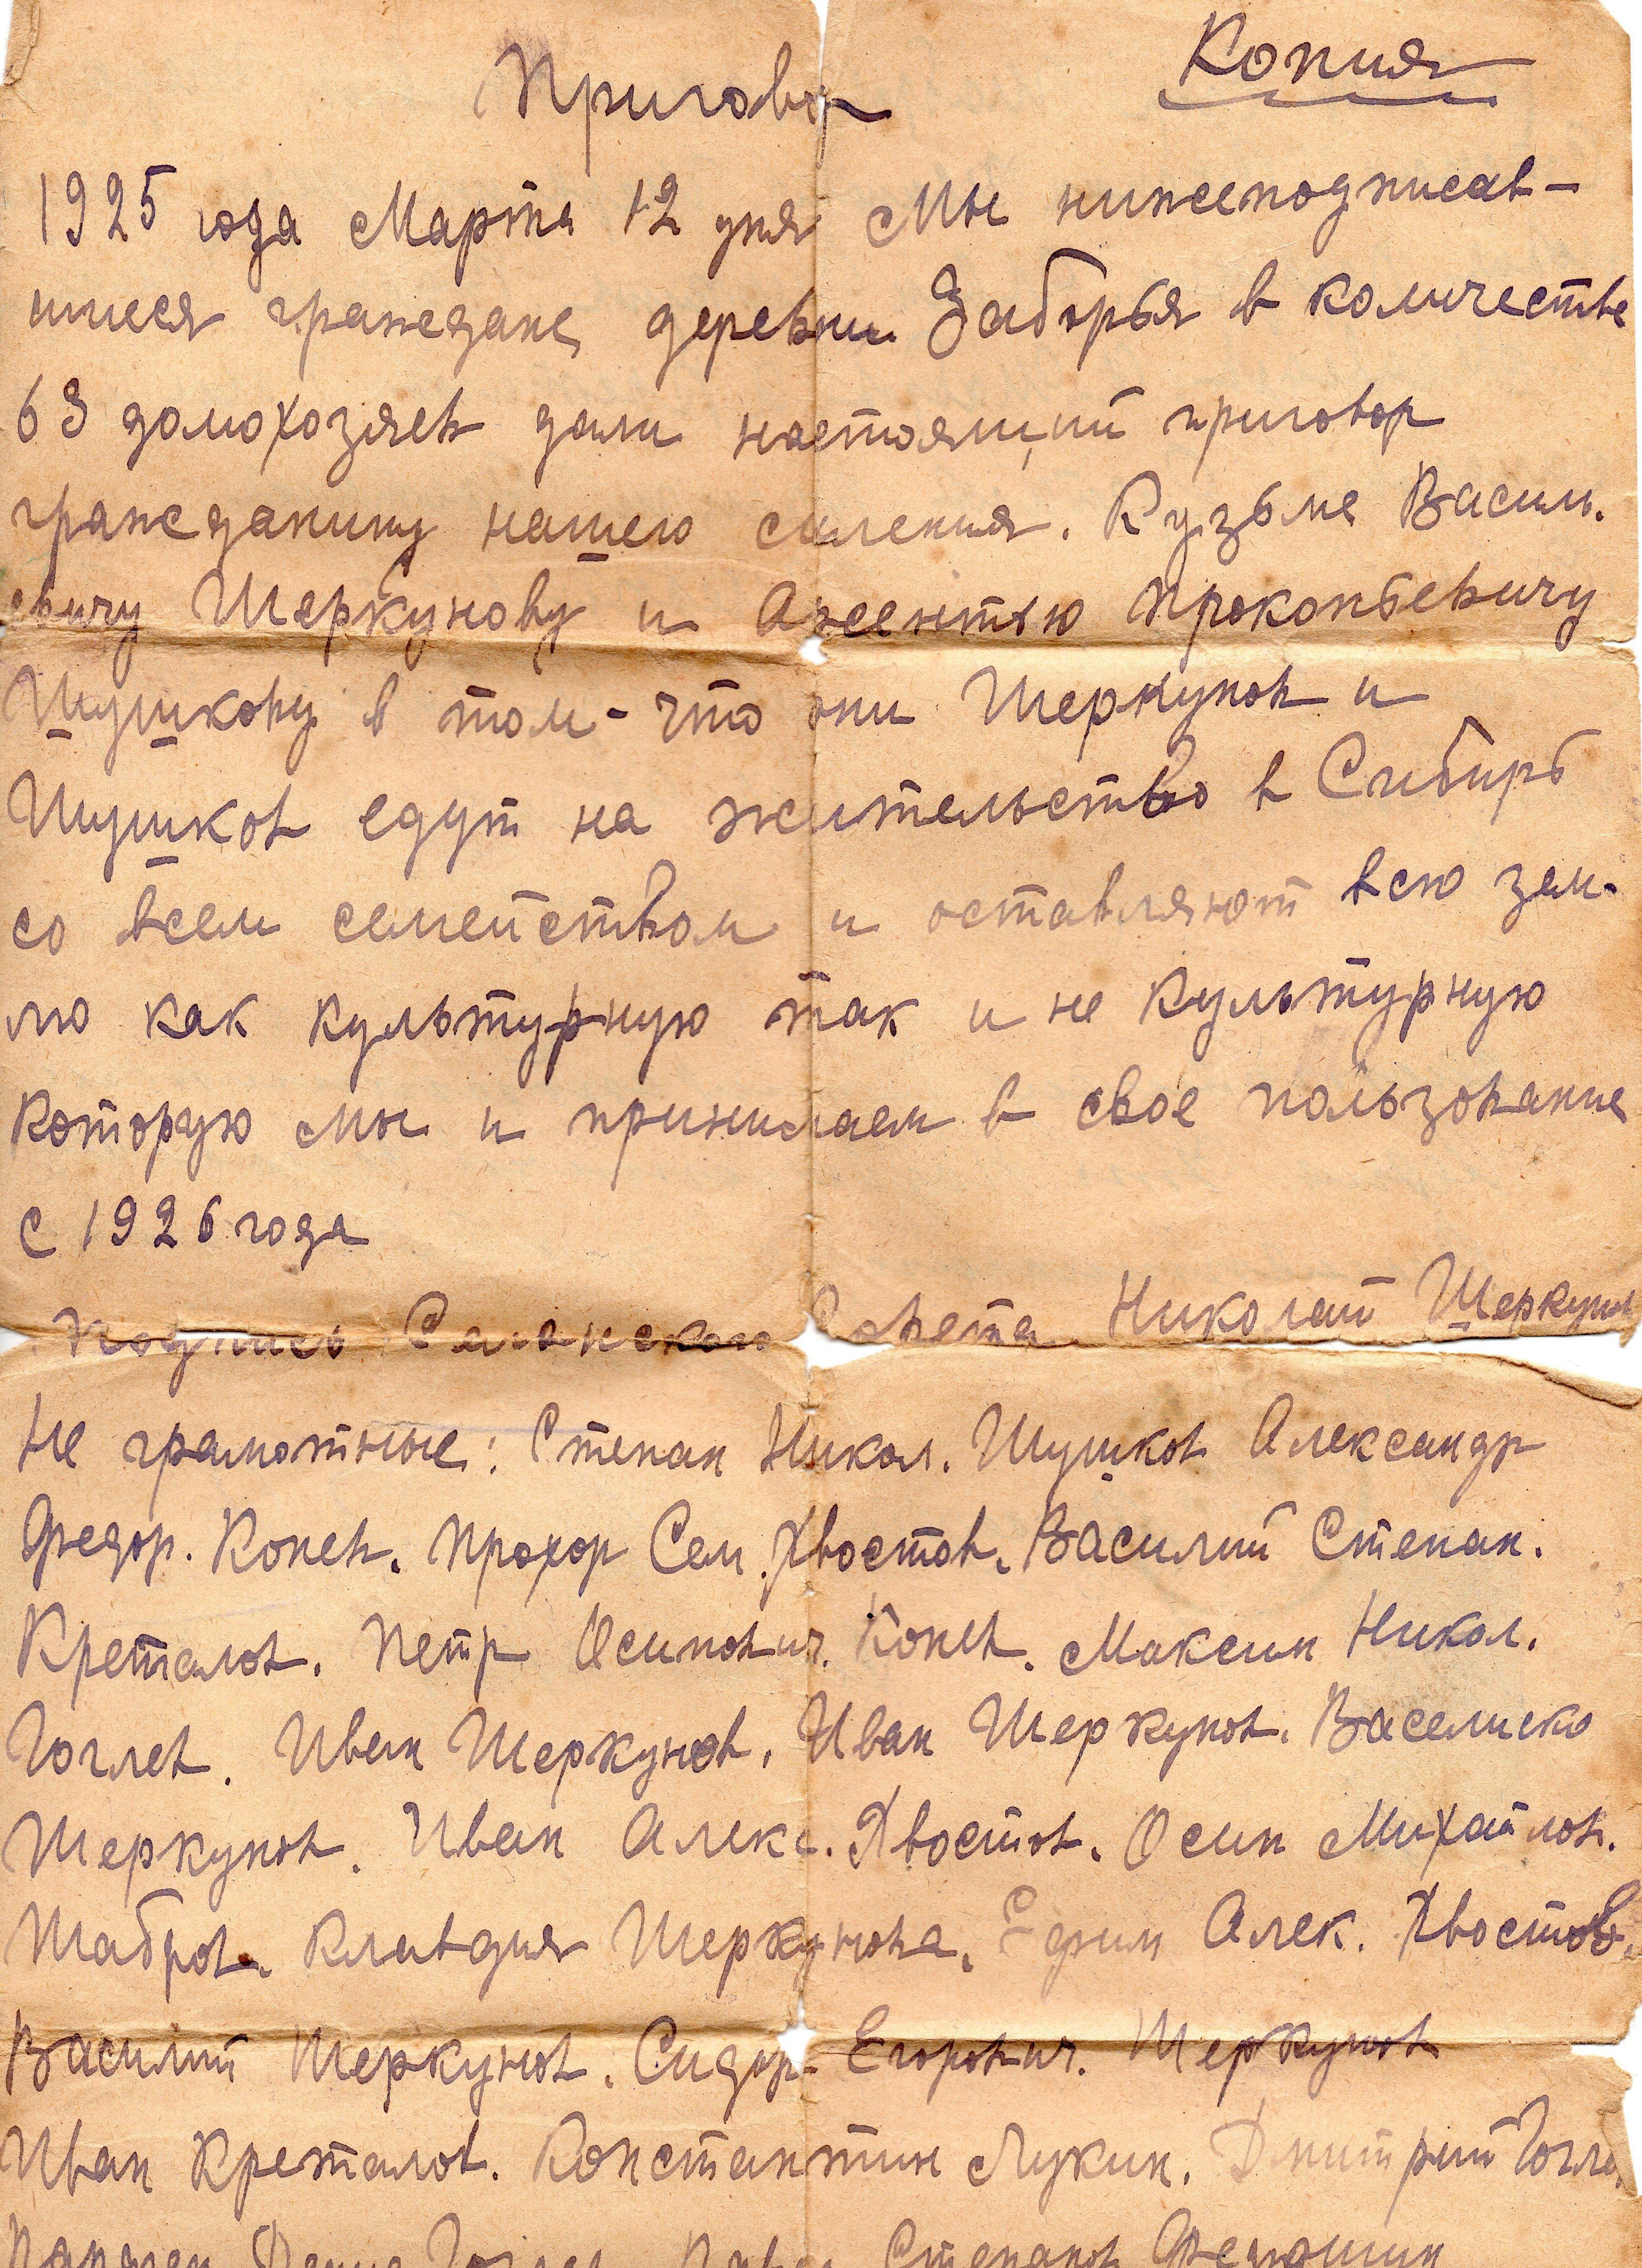 Копия
Приговор
1925 года Марта 12 дня Мы нижеподписав-
шиеся граждане деревни Заборья в количестве
63 домохозяев дали настоящий приговор
гражданину нашего селения. Кузьме Василь.
евичу Шеркунову и Авсентью Прокопьевичу
Шушкову в том-что они Шеркунов и
Шушков едут на жительство в Сибирь
со всем семейством и оставляют всю зем-
лю как культурную так и не культурную
которую мы и принимаем в свое пользование
с 1926 года
Подпись Сельского Совета Николай Шеркунов
Не грамотные: Степан Никол. Шушков Александр
Федор. Конев. Прохор Сем. Хвостов. Василий Степан.
Креталов. Петр Осипович. Конев. Максим Никол.
Гоглев. Иван Шеркунов. Иван Шеркунов. Васелиско
Шеркунов. Иван Алекс. Хвостов. Осип Михайлов.
Шабров. Клавдия Шеркунова. Ефим Алек. Хвостов.
Василий Шеркунов. Сидор Егорович. Шеркунов
Иван Креталов. Константин Лукин. Дмитрий Гогле
Степанов